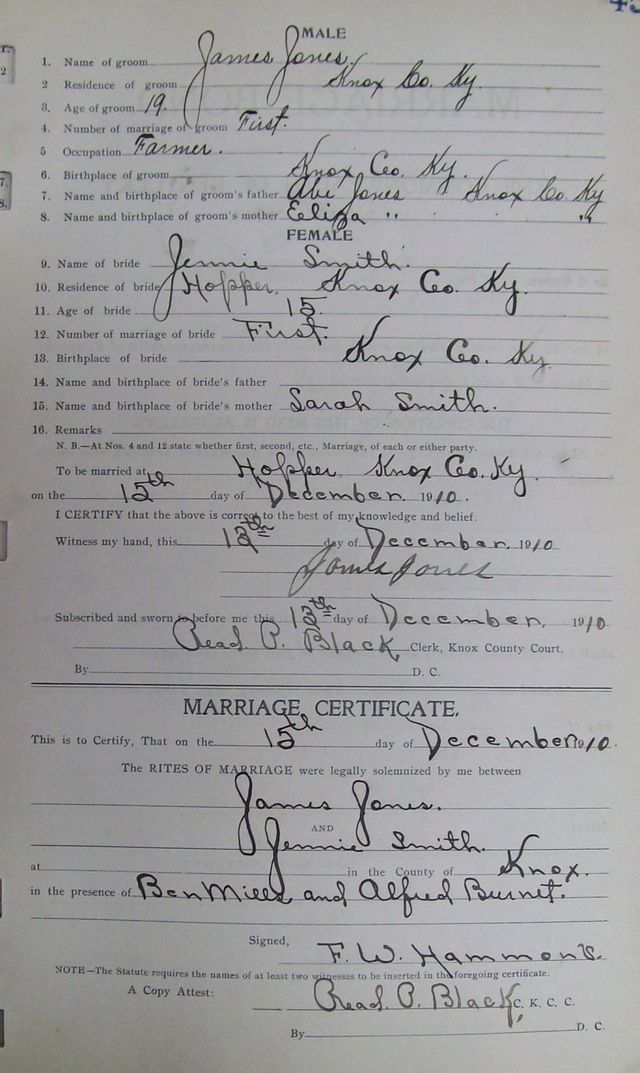 MALE
1. Name of groom James Jones.
2 Residence of groom Knox Co. Ky.
3. Age of groom 19.
4. Number of marriage of groom First.
5 Occupation Farmer.
6. Birthplace of groom Knox Co. Ky.
7. Name and birthplace of groom's father Abe Jones Knox Co. Ky
8. Name and birthplace of groom's mother Eliza " "
FEMALE
9. Name of bride Jennie Smith.
10. Residence of bride Hopper. Knox Co. Ky.
11. Age of bride 15.
12. Number of marriage of bride First.
13. Birthplace of bride Knox Co. Ky.
14. Name and birthplace of bride's father
15. Name and birthplace of bride's mother Sarah Smith.
16. Remarks
N. B.—At Nos. 4 and 12 state whether first, second, etc., Marriage, of each or either party.
To be married at Hopper Knox Co. Ky.
on the 15th day of December. 1910.
I CERTIFY that the above is correct to the best of my knowledge and belief.
Witness my hand, this 13th day of December. 1910
James Jones
Subscribed and sworn to before me this 13th day of December. 1910.
Read P. Black, Clerk, Knox County Court.
By D. C.
MARRIAGE CERTIFICATE.
This is to Certify, That on the 15th day of December. 1910.
The RITES OF MARRIAGE were legally solemnized by me between
James Jones.
AND
Jennie Smith.
at in the County of Knox.
in the presence of Ben Mills and Alfred Burnet.
Signed, F. W. Hammons.
NOTE—The Statute requires the names of at least two witnesses to be inserted in the foregoing certificate.
A Copy Attest: Read P. Black, C. K. C. C.
By D. C.